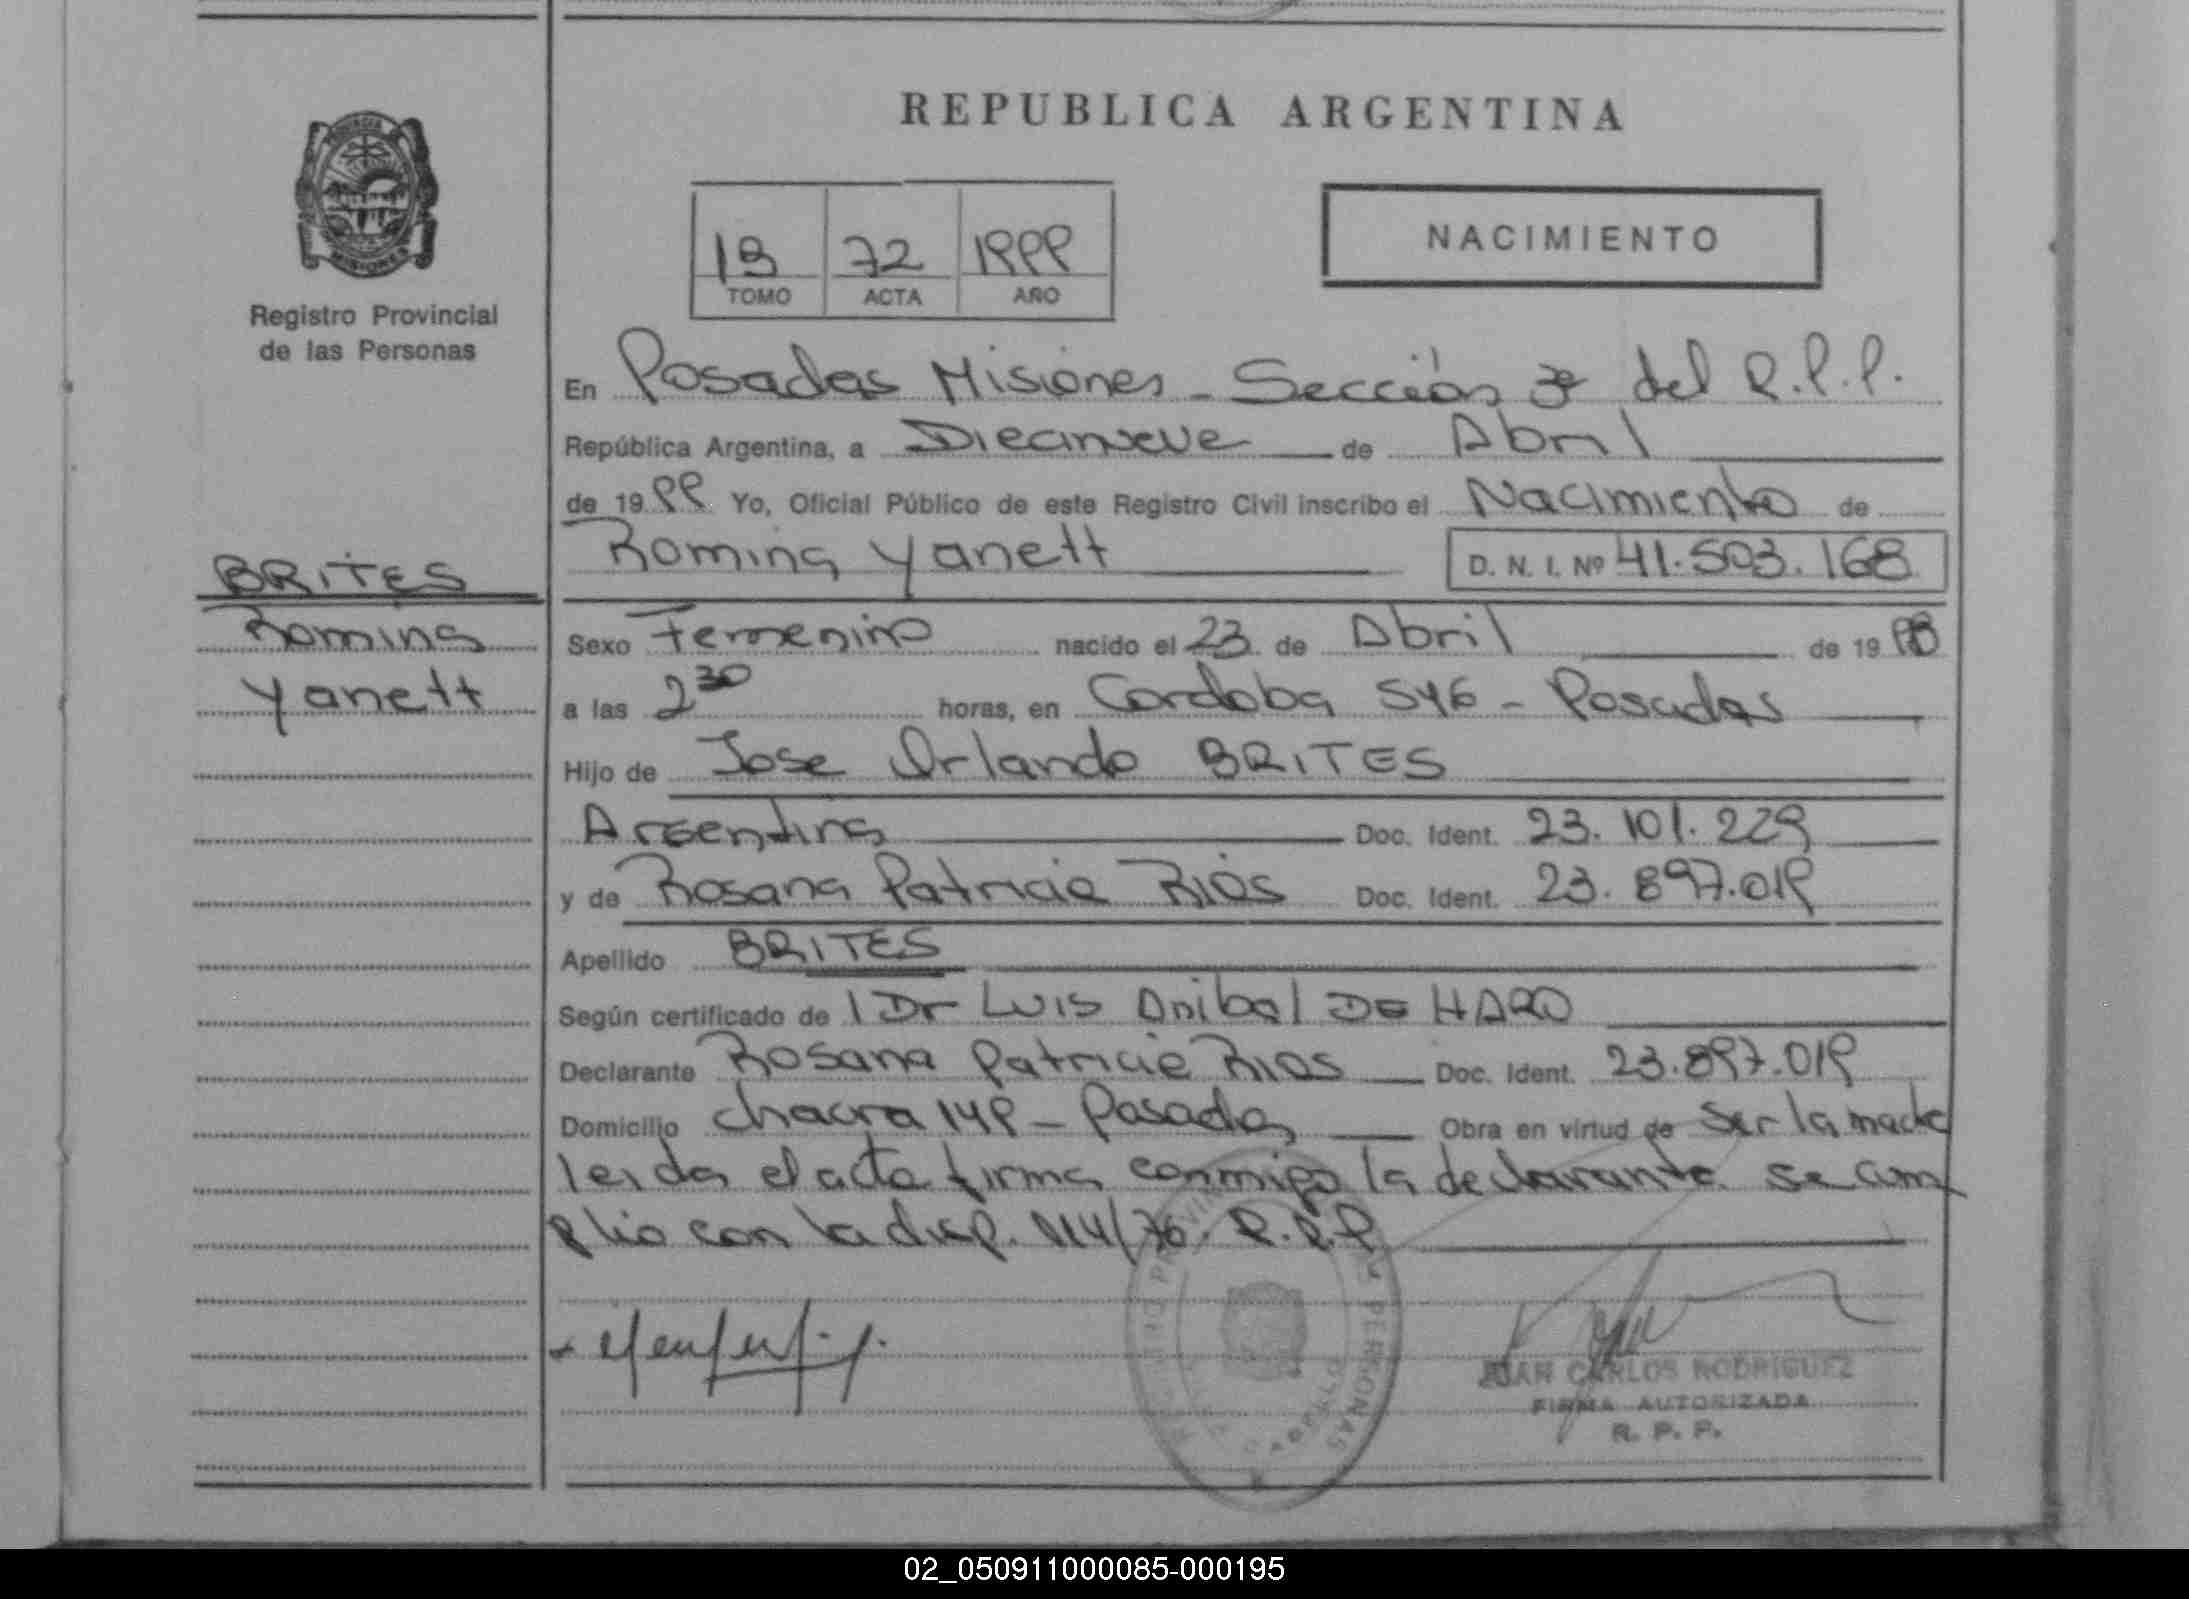 REPUBLICA ARGENTINA
MISIONES
Registro Provincial
de las Personas
1B 72 1999
TOMO ACTA AÑO
NACIMIENTO
En Posadas Misiones - Sección 3º del R.P.P.
República Argentina, a Diecinueve de Abril
de 1999 Yo, Oficial Público de este Registro Civil inscribo el Nacimiento de
Romina Yanett D. N. I. Nº 41.503.168
BRITES
Romina
Yanett
Sexo Femenino nacido el 23 de Abril de 19 98
a las 2 30 horas, en Cordoba 546 - Posadas
Hijo de Jose Orlando BRITES
Argentina Doc. Ident. 23.101.229
y de Rosana Patricia Rios Doc. Ident. 23.897.019
Apellido BRITES
Según certificado de l Dr Luis Anibal DE HARO
Declarante Rosana Patricia Rios Doc. Ident. 23.897.019
Domicilio chacra 149 - Posadas Obra en virtud de ser la madre
leida el acta firma conmigo la declarante se cum
plio con la disp. 114/76. R.P.P.
JUAN CARLOS RODRIGUEZ
FIRMA AUTORIZADA
R. P. P.
02_050911000085-000195